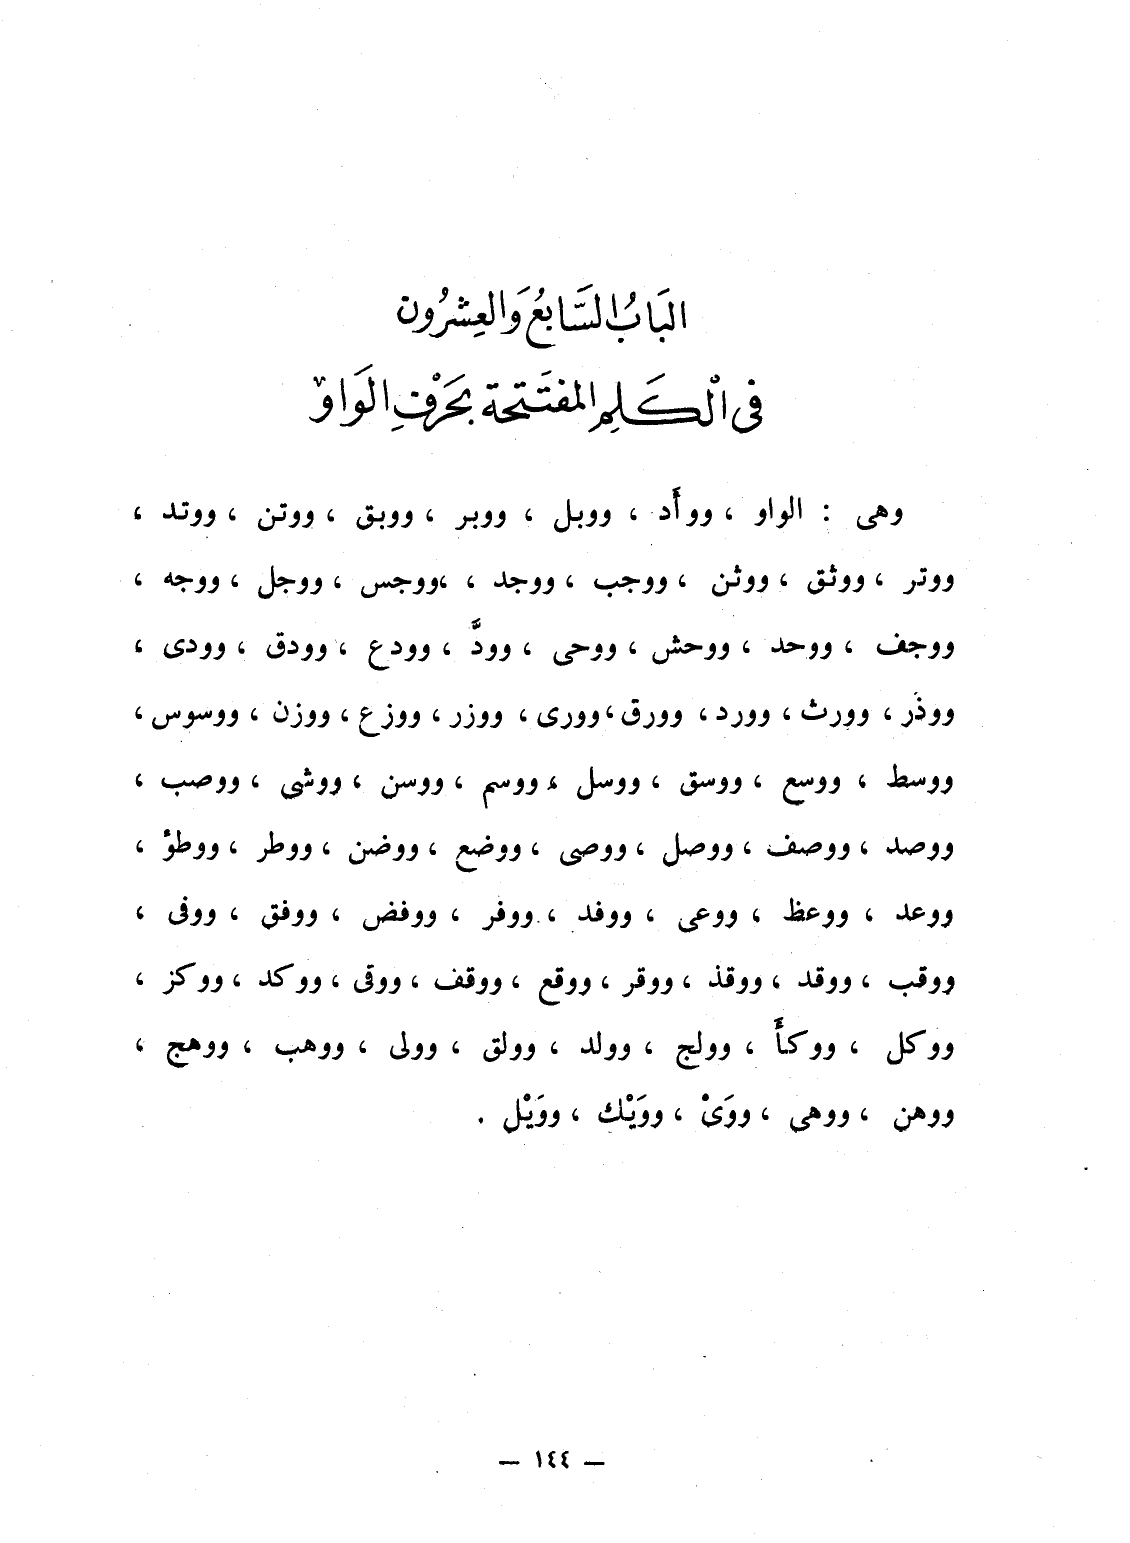 البَابُ السَّابعُ وَالعِشرُون
فى الْكَلِم المفتَتحة بحَرْفِ الوَاو
وهى : الواو ، ووأَد ، ووبل ، ووبر ، ووبق ، ووتن ، ووتد ،
ووتر ، ووثق ، ووثن ، ووجب ، ووجد ، ،ووجس ، ووجل ، ووجه ،
ووجف ، ووحد ، ووحش ، ووحى ، وودَّ ، وودع ، وودق ، وودى ،
ووذر ، وورث ، وورد ، وورق ، وورى ، ووزر ، ووزع ، ووزن ، ووسوس ،
ووسط ، ووسع ، ووسق ، ووسل ، ووسم ، ووسن ، ووشى ، ووصب ،
ووصد ، ووصف ، ووصل ، ووصى ، ووضع ، ووضن ، ووطر ، ووطؤ ،
ووعد ، ووعظ ، ووعى ، ووفد ، ووفر ، ووفض ، ووفق ، ووفى ،
ووقب ، ووقد ، ووقذ ، ووقر ، ووقع ، ووقف ، ووقى ، ووكد ، ووكز ،
ووكل ، ووكأَ ، وولج ، وولد ، وولق ، وولى ، ووهب ، ووهج ،
ووهن ، ووهى ، ووَىْ ، ووَيْك ، ووَيْل .
— ١٤٤ —